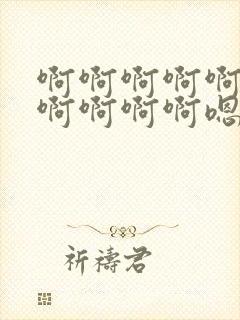 啊啊啊啊啊
啊啊啊啊嗯
祈祷君